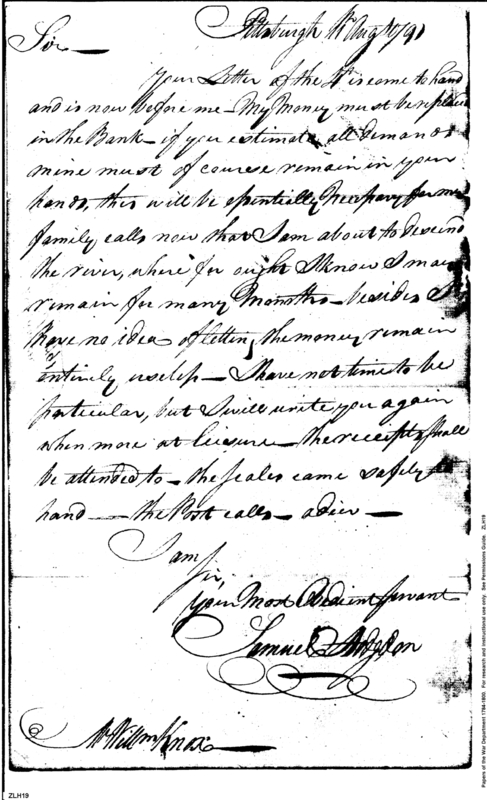 Pittsburgh Augt 1791
Sir —
Your Letter of the 4th is come to hand
and is now before me — My Money must be
in the Bank — if you estimate all demands
mine must of course remain in your
hands, this will be essentially Necessary for my
family calls now that I am about to descend
the river, where for ought I know I may
remain for many Months — besides I
have no idea of letting the money remain
entirely useless — I have not time to be
particular, but I will write you again
when more at leisure — the receipts shall
be attended to — the scales came safely to
hand — the Post calls — adieu —
I am
Sir,
your Most Obedient servant
Samuel Hodgdon
Mr Willm Knox —
ZLH19
Papers of the War Department 1784-1800. For research and instructional use only. See Permissions Guide. ZLH19